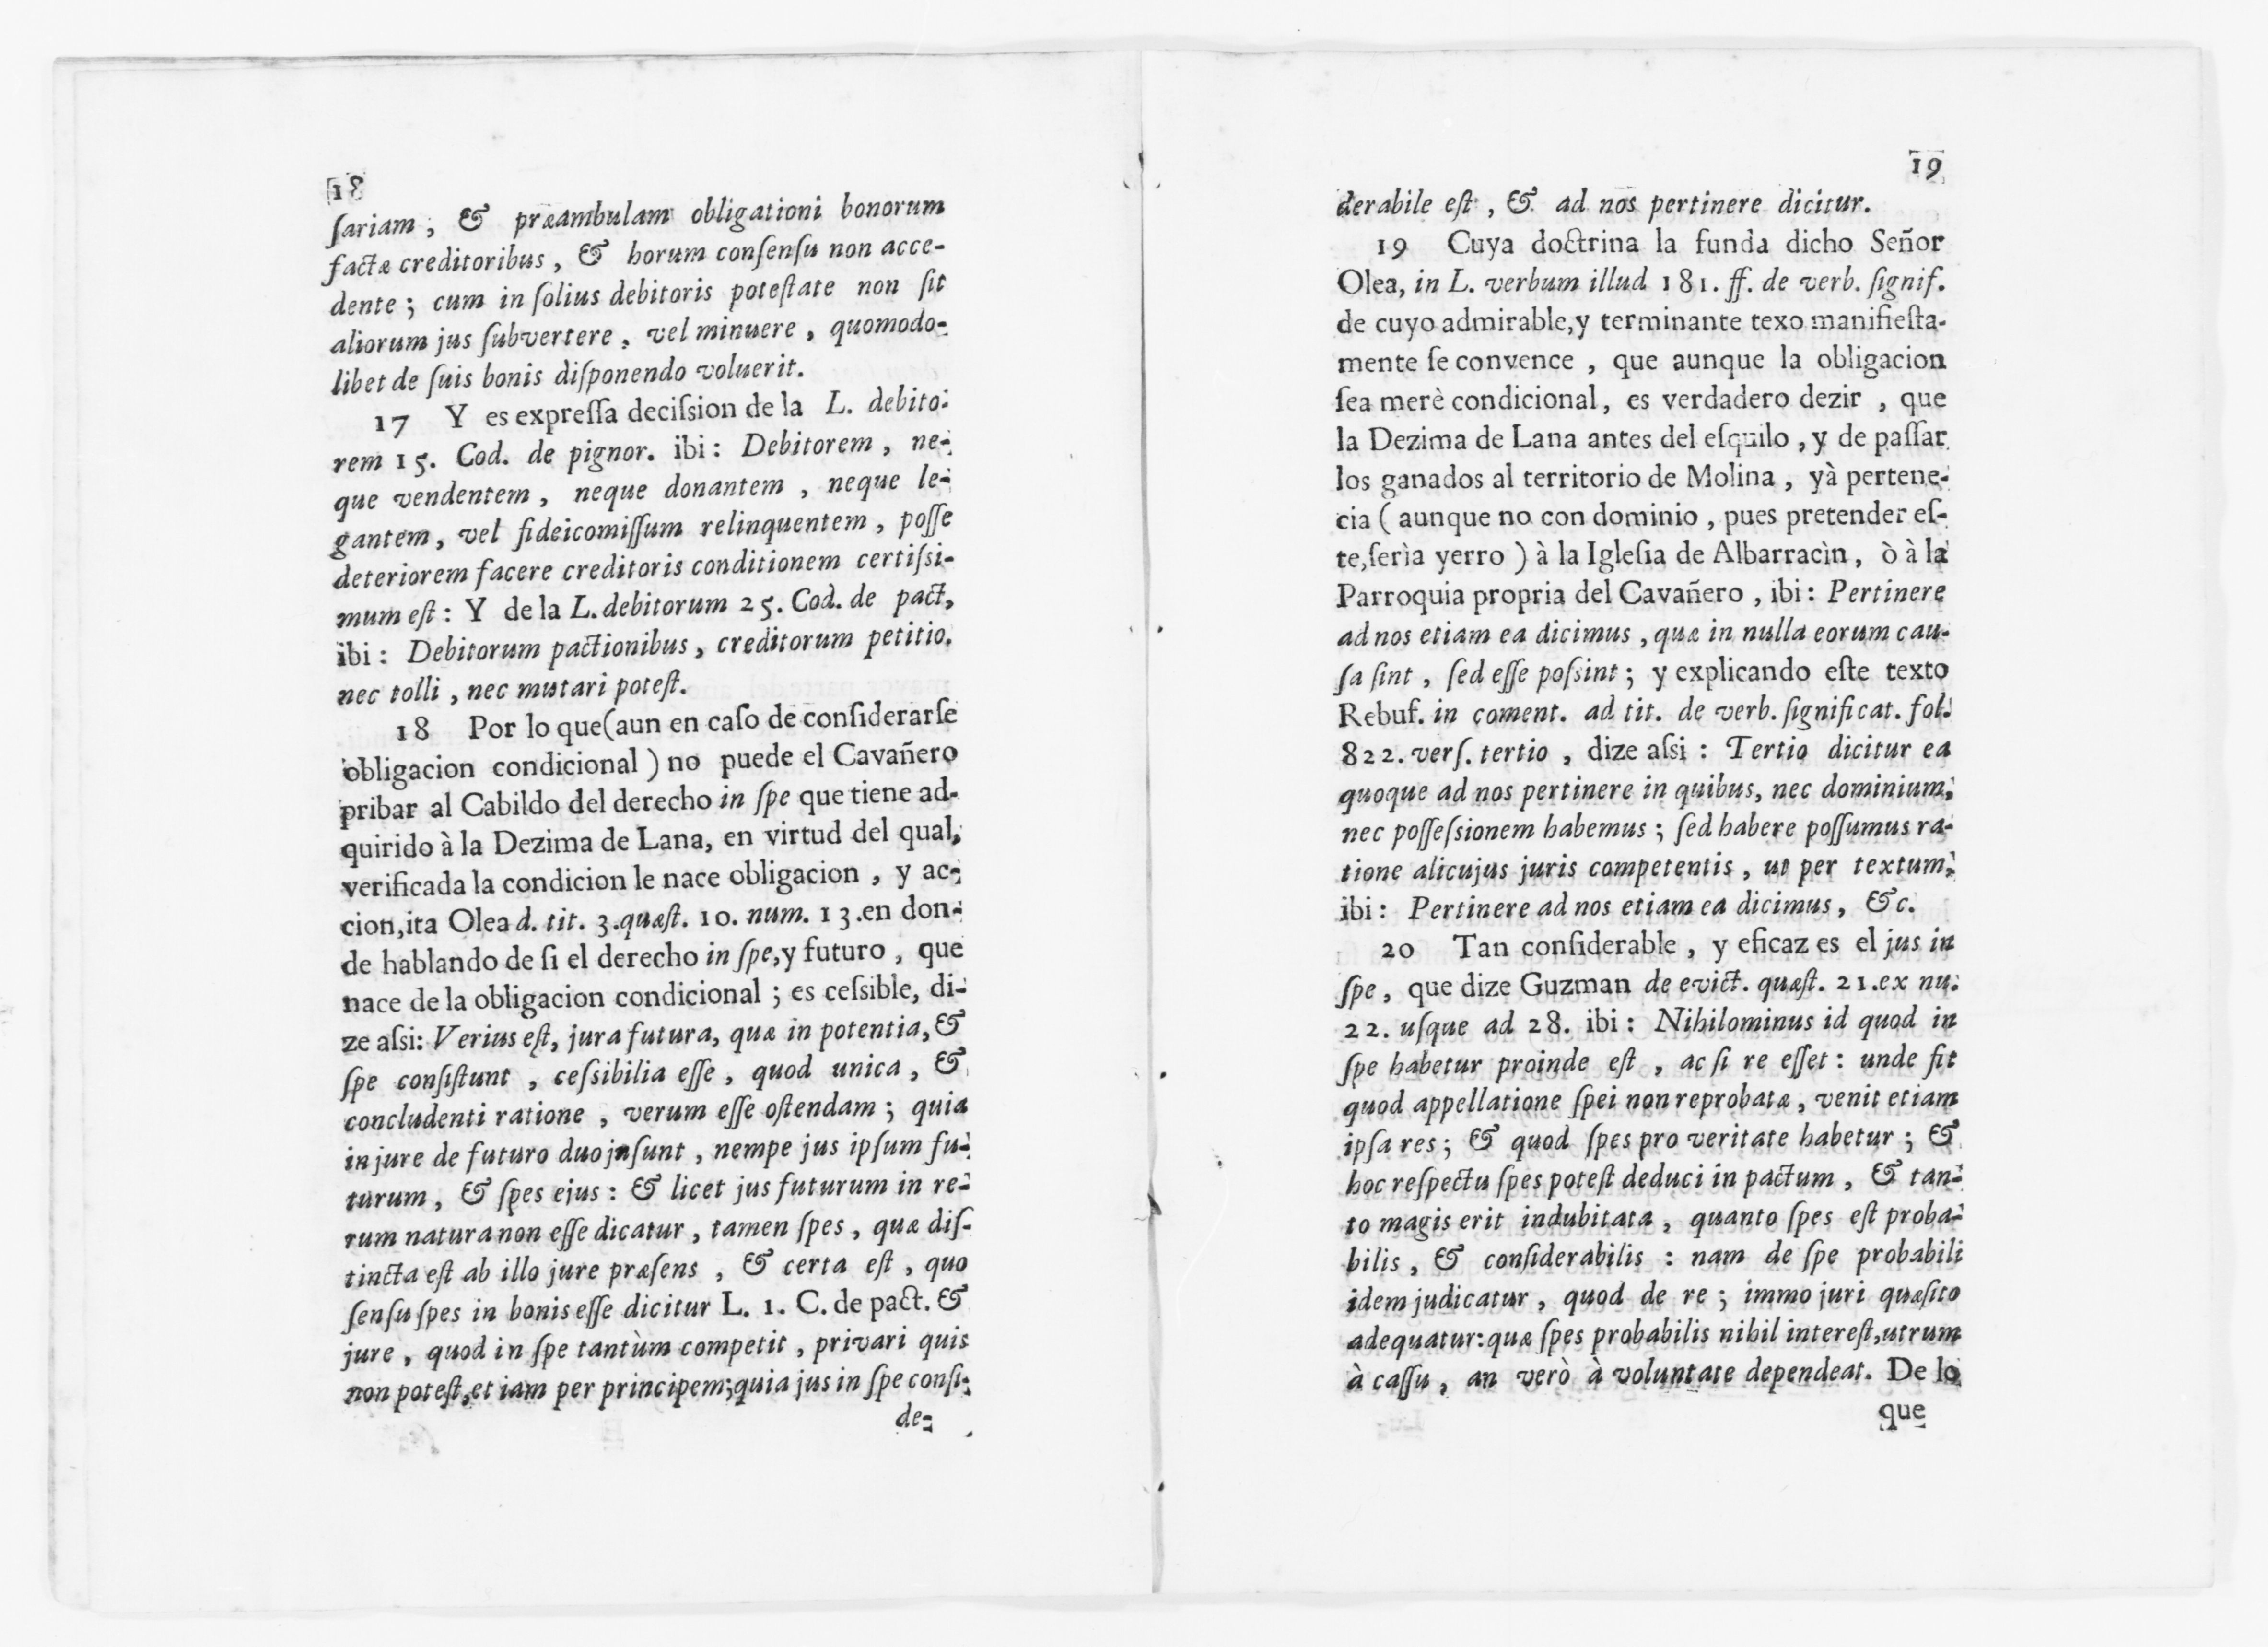 18
ſariam; & præambulam obligationi bonorum
factæ creditoribus, & horum conſenſu non acce-
dente; cum in ſolius debitoris poteſtate non ſit
aliorum jus ſubvertere, vel minuere, quomodo-
libet de ſuis bonis diſponendo voluerit.
17 Y es expreſſa deciſsion de la L. debito-
rem 15. Cod. de pignor. ibi: Debitorem, ne-
que vendentem, neque donantem, neque le-
gantem, vel fideicomiſſum relinquentem, poſſe
deteriorem facere creditoris conditionem certiſsi-
mum eſt: Y de la L. debitorum 25. Cod. de pact,
ibi: Debitorum pactionibus, creditorum petitio.
nec tolli, nec mutari poteſt.
18 Por lo que (aun en caſo de conſiderarſe
obligacion condicional) no puede el Cavañero
pribar al Cabildo del derecho in ſpe que tiene ad-
quirido à la Dezima de Lana, en virtud del qual,
verificada la condicion le nace obligacion, y ac-
cion, ita Olea d. tit. 3. quæſt. 10. num. 13. en don-
de hablando de ſi el derecho in ſpe, y futuro, que
nace de la obligacion condicional; es ceſsible, di-
ze aſsi: Verius eſt, jura futura, quæ in potentia, &
ſpe conſiſtunt, ceſsibilia eſſe, quod unica, &
concludenti ratione, verum eſſe oſtendam; quia
in jure de futuro duo jnſunt, nempe jus ipſum fu-
turum, & ſpes ejus: & licet jus futurum in re-
rum natura non eſſe dicatur, tamen ſpes, quæ diſ-
tincta eſt ab illo jure præſens, & certa eſt, quo
ſenſu ſpes in bonis eſſe dicitur L. 1. C. de pact. &
jure, quod in ſpe tantùm competit, privari quis
non poteſt, et iam per principem; quia jus in ſpe conſi-
de-
19
derabile eſt, & ad nos pertinere dicitur.
19 Cuya doctrina la funda dicho Señor
Olea, in L. verbum illud 181. ff. de verb. ſignif.
de cuyo admirable, y terminante texo manifieſta-
mente ſe convence, que aunque la obligacion
ſea merè condicional, es verdadero dezir, que
la Dezima de Lana antes del eſquilo, y de paſſar
los ganados al territorio de Molina, yà pertene-
cia (aunque no con dominio, pues pretender eſ-
te, ſerìa yerro) à la Igleſia de Albarracìn, ò à la
Parroquia propria del Cavañero, ibi: Pertinere
ad nos etiam ea dicimus, quæ in nulla eorum cau-
ſa ſint, ſed eſſe poſsint; y explicando eſte texto
Rebuf. in coment. ad tit. de verb. ſignificat. fol.
822. verſ. tertio, dize aſsi: Tertio dicitur ea
quoque ad nos pertinere in quibus, nec dominium,
nec poſſeſsionem habemus; ſed habere poſſumus ra-
tione alicujus juris competentis, ut per textum,
ibi: Pertinere ad nos etiam ea dicimus, &c.
20 Tan conſiderable, y eficaz es el jus in
ſpe, que dize Guzman de evict. quæſt. 21. ex nu.
22. uſque ad 28. ibi: Nihilominus id quod in
ſpe habetur proinde eſt, ac ſi re eſſet: unde fit
quod appellatione ſpei non reprobatæ, venit etiam
ipſa res; & quod ſpes pro veritate habetur; &
hoc reſpectu ſpes poteſt deduci in pactum, & tan-
to magis erit indubitata, quanto ſpes eſt proba-
bilis, & conſiderabilis: nam de ſpe probabili
idem judicatur, quod de re; immo juri quæſito
adequatur: quæ ſpes probabilis nihil intereſt, utrum
à caſſu, an verò à voluntate dependeat. De lo
que